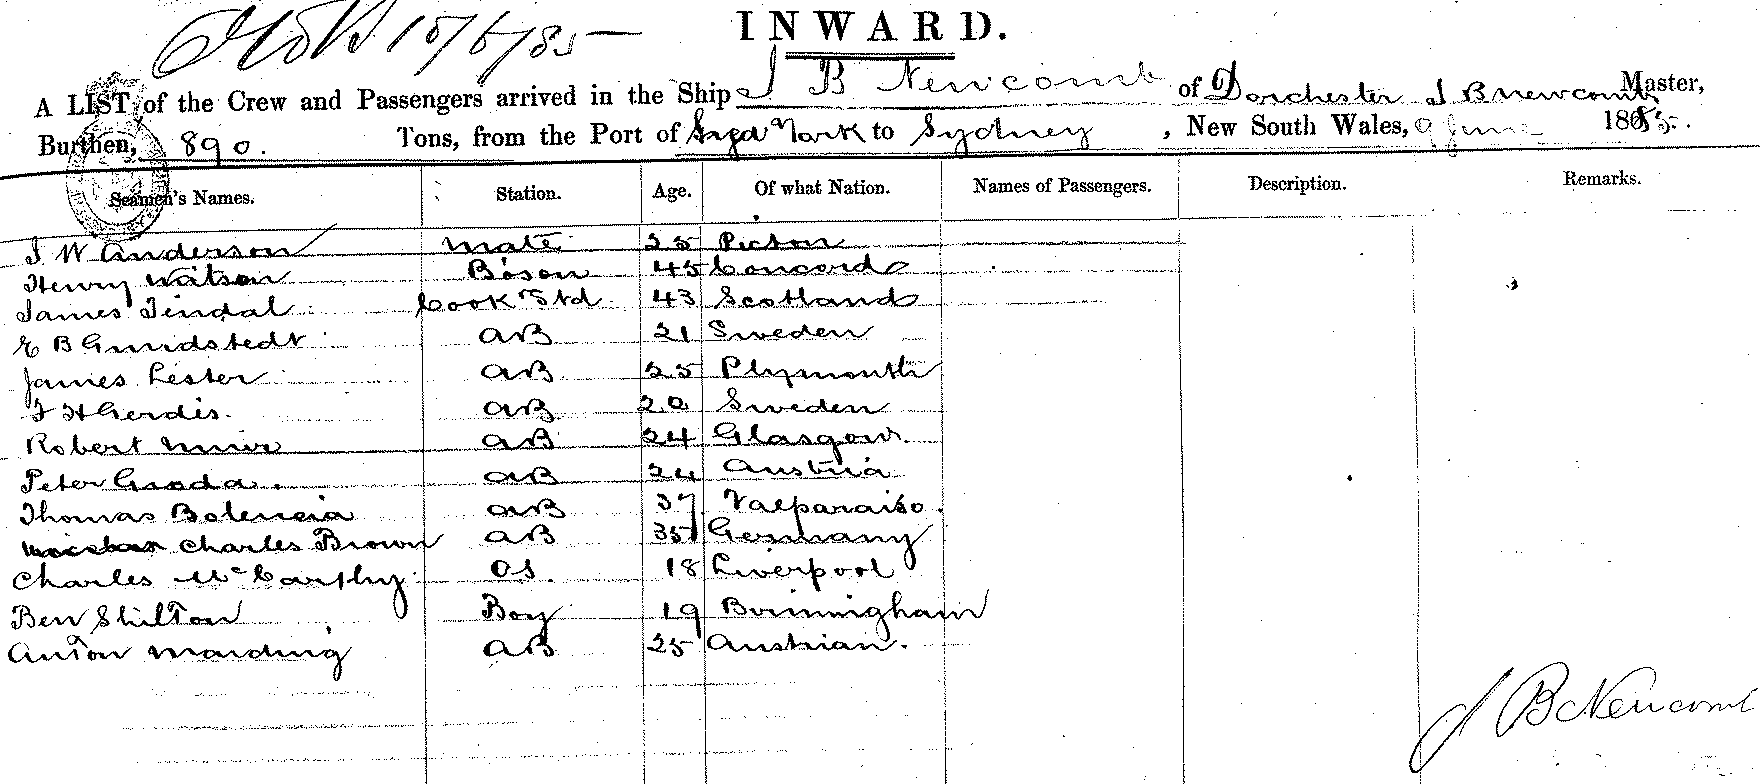 15/6/85
INWARD.
A LIST of the Crew and Passengers arrived in the Ship J B Newcomb of Dorchester J B Newcomb Master,
Burthen, 890. Tons, from the Port of York to Sydney, New South Wales, 9 June 1885.
Seamen's Names. Station. Age. Of what Nation. Names of Passengers. Description. Remarks.
J W Anderson Mate 25 Picton
Henry Watson Boson 45 Concord
James Tindal Cook & Std 43 Scotland
E B Gundstedt AB 21 Sweden
James Lester AB 25 Plymouth
F H Gerdis. AB 20 Sweden
Robert Muir AB 24 Glasgow.
Peter AB 24 Austria
Thomas Balencia AB 37 Valparaiso.
Charles Brown AB 35 Germany
Charles McCarthy OS. 18 Liverpool
Ben Shilton Boy 19 Birmingham
Anton Marding AB 25 Austrian.
J B Newcomb